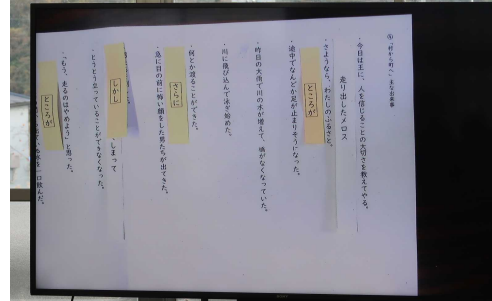 ④「村から町へ」主な出来事
・今日は王に、人を信じることの大切さを教えてやる。
走り出したメロス
・さようなら、わたしのふるさと。
ところが
・途中でなんどか足が止まりそうになった。
・昨日の大雨で川の水が増えて、橋がなくなっていた。
・川に飛び込んで泳ぎ始めた。
・何とか渡ることができた。
さらに
・急に目の前に怖い顔をした男たちが出てきた。
しかし
しまって
・とうとう立っていることができなくなった。
・「もう、走るのはやめよう」と思った。
ところが
いる水を一口飲んだ。